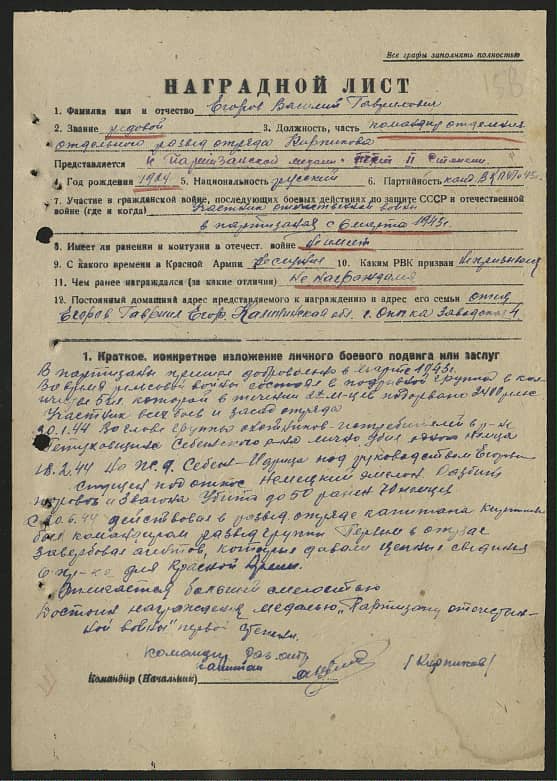 Все графы заполнять полностью
НАГРАДНОЙ ЛИСТ
1. Фамилия имя и отчество Егоров Василий Гаврилович
2. Звание рядовой 3. Должность, часть командир отделения
отдельного развед отряда Кирпикова
Представляется к Партизанской медали II степени
4. Год рождения 1924 5. Национальность русский 6. Партийность канд. ВКП(б)
7. Участие в гражданской войне, последующих боевых действиях по защите СССР и отечественной
войне (где и когда) Участник отечественной войны
в партизанах с 6 марта 1943г.
8. Имеет ли ранения и контузии в отечест. войне не имеет
9. С какого времени в Красной Армии не служил 10. Каким РВК призван не призывался
11. Чем ранее награждался (за какие отличия) не награждался
12. Постоянный домашний адрес представляемого к награждению и адрес его семьи отец
Егоров Гавриил Егор. Калининская обл. г. Опочка Заводская 4
1. Краткое, конкретное изложение личного боевого подвига или заслуг
В партизаны пришел добровольно в марте 1943г.
Во время рельсовой войны состоял в подрывной группе в кол
ичестве 5 чел. которой в течении 2х м-цев подорвано 2400 рельс
Участник всех боев и засад отряда
20.1.44 Во главе группы охотников-истребителей в р-не
Петуховщина Себежского р-на лично убил немца
18.2.44 На ж.д. Себеж-Идрица под руководством Егорова
спущен под откос немецкий эшелон Разбит
паровоз и 3 вагона Убито до 50 ранен 70 немцев
С 20.6.44 действовал в развед. отряде капитана Кирпикова
был командиром развед группы Первым в отряде
Завербовал агентов, которые давали ценные сведения
о пр-ке для Красной Армии.
Отличается большой смелостью
Достоин награждения медалью „Партизану отечествен-
ной войны" первой степени.
командир раз. отр
капитан (Кирпиков)
Командир (Начальник)